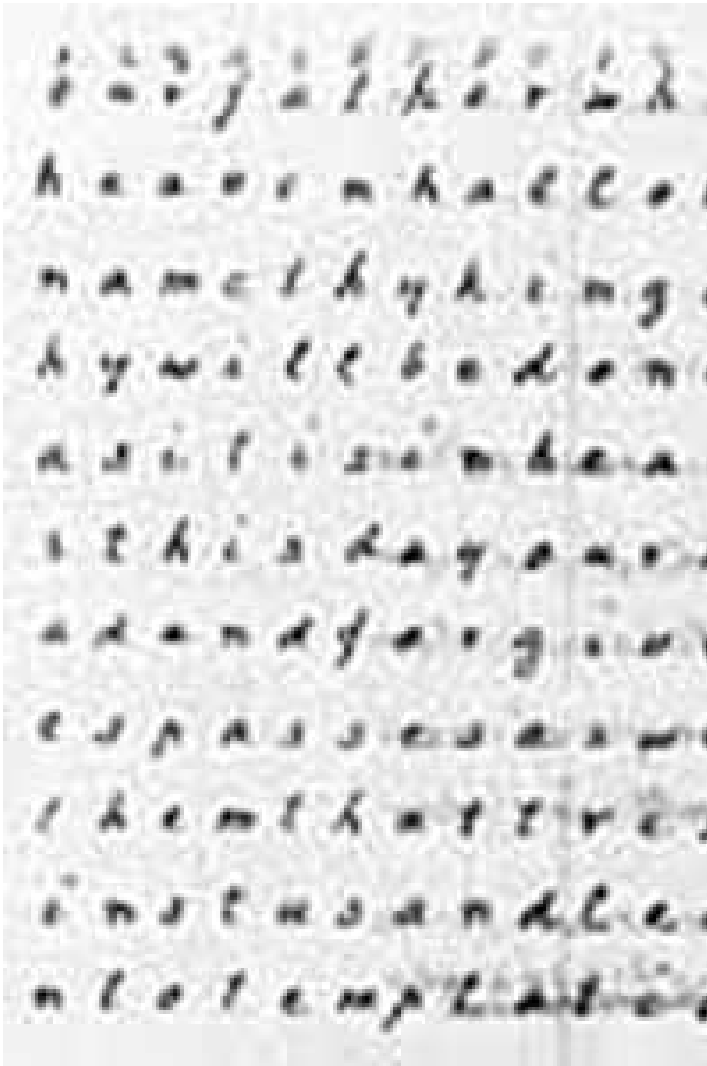 o u r f a t h e r w h
h e a v e n h a l l o
n a m e t h y k i n g
h y w i l l b e d o n
a s i t i s i n h e a
s t h i s d a y o u r
a d a n d f o r g i v
e s p a s s e s a s w
t h e m t h a t t r e
i n s t u s a n d l e
n t o t e m p t a t i